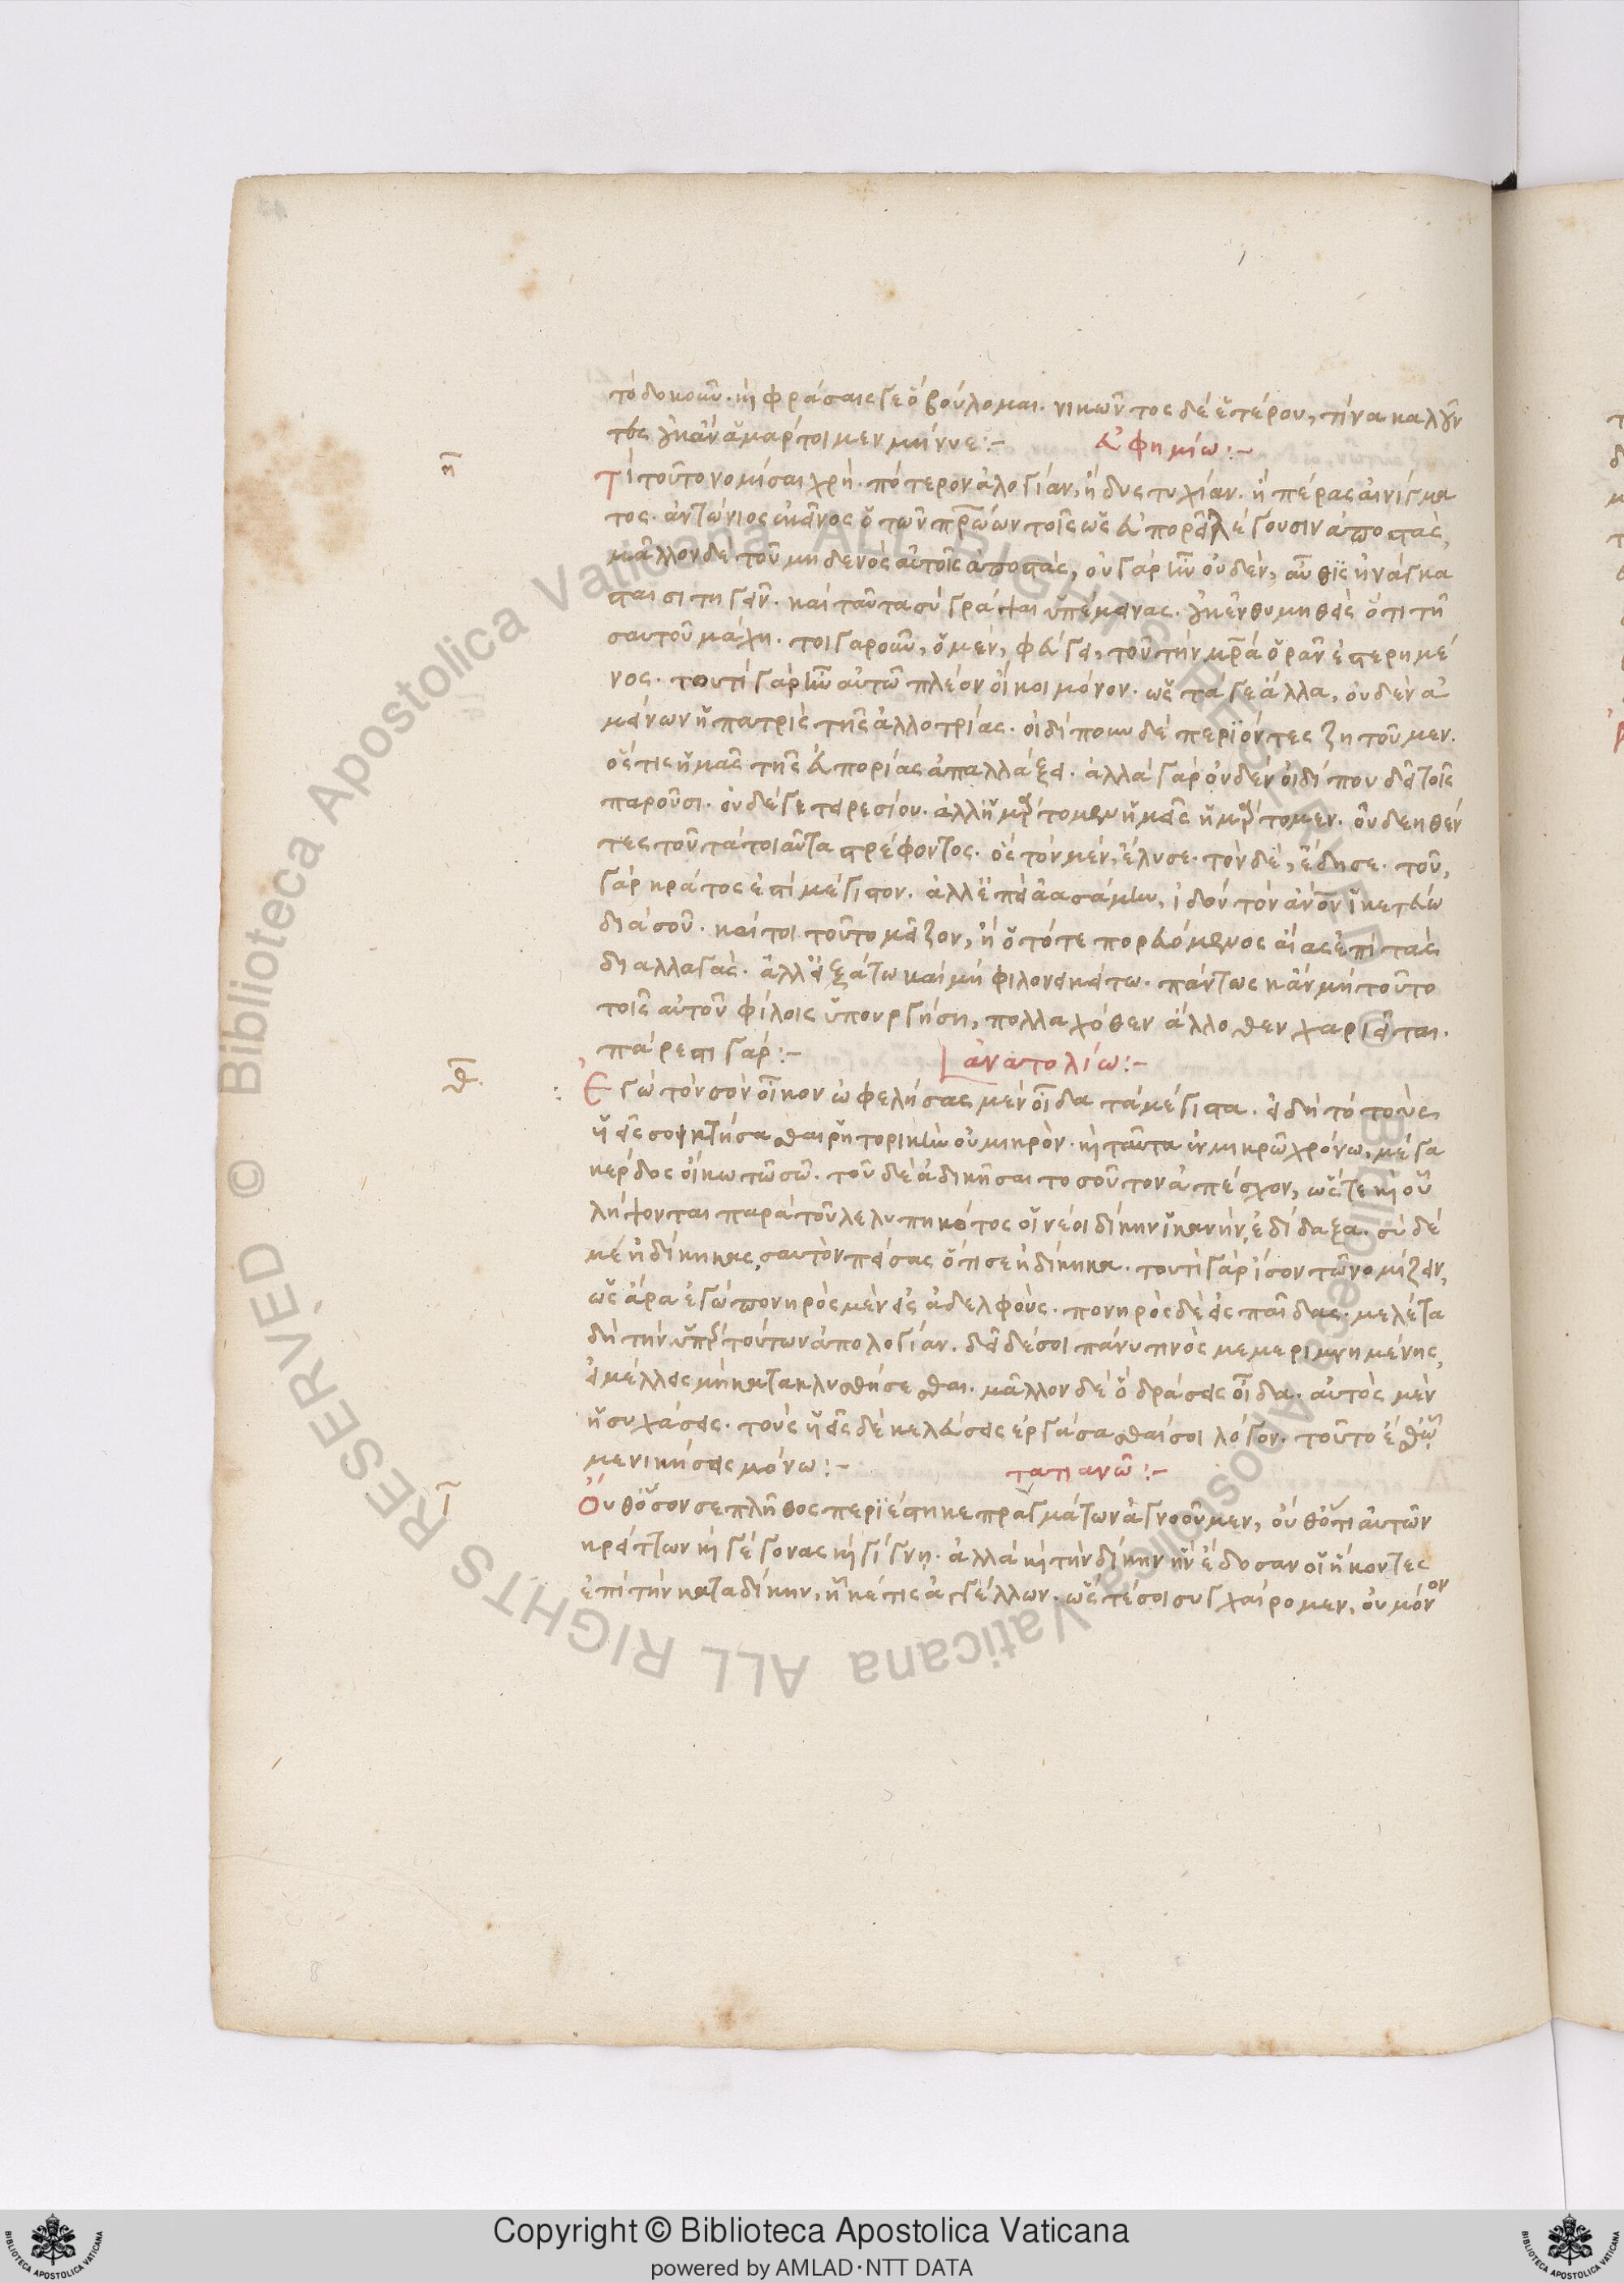 τὸ δοκοῦν. καὶ φράσαις γε ὃ βούλομαι. νικῶντος δὲ ἑτέρου, τίνα καλοῦν
τες οὐκ ἂν ἁμάρτοιμεν μήνυε :-
εὐφημίω :-
η
Τί τοῦτο νομίσαι χρή. πότερον ἀλογίαν, ἢ δυστυχίαν. ἢ πέρας αἰνίγμα
τος. ἀντώνιος ἐκεῖνος ὁ τῶν πατρώων τοῖς ὡς εὐπορεῖ λέγουσιν ἀποστὰς,
μᾶλλον δὲ τοῦ μηδενὸς αὐτοῖς ἀποστὰς, οὐ γὰρ ἦν οὐδὲν, αὖθις ἠνάγκα
σται σιτηγεῖν. καὶ ταῦτα συγγράψαι ὑπέμεινας. οὐκ ἐνθυμηθεὶς ὅτι τῇ
σαυτοῦ μάχῃ. τοιγαροῦν, ὁ μὲν, φεύγει, τοῦ τὴν μητέρα ὁρᾶν ἐστερημέ
νος. τουτὶ γὰρ ἦν αὐτῶ πλέον οἴκοι μόνον. ὡς τά γε ἄλλα, οὐδὲν ἀ
μείνων ἡ πατρὶς τῆς ἀλλοτρίας. οἰδίπουν δὲ περιϊόντες ζητοῦμεν.
ὅστις ἡμᾶς τῆς ἀπορίας ἀπαλλάξει. ἀλλὰ γὰρ οὐδὲν οἰδίπου δεῖ τοῖς
παροῦσι. οὐδέ γε τειρεσίου. ἀλλ' ἡμάρτομεν ἡμεῖς ἡμάρτομεν. οὐ δεηθέν
τες τοῦ τὰ τοιαῦτα στρέφοντος. ὃς τὸν μὲν, ἔλυσε. τὸν δὲ, ἔδησε. τοῦ
γὰρ κράτος ἐστὶ μέγιστον. ἀλλ'
διὰ σοῦ. καίτοι τοῦτο μεῖζον, ἢ ὁπότε πορευόμενος ᾔεις ἐπὶ τὰς
διαλλαγάς. ἀλλ' εἰξάτω καὶ μὴ φιλονεικείτω. πάντως κἂν μὴ τοῦτο
τοῖς αὐτοῦ φίλοις ὑπουργήση, πολλαχόθεν ἄλλοθεν χαριεῖται.
πάρεστι γάρ :-
ἀνατολίω :-
θ
Ἐγὼ τὸν σὸν οἶκον ὠφελήσας μὲν οἶδα τὰ μέγιστα. εἰ δὴ τὸ τοὺς
υἱεῖς σοι κτήσασθαι ῥητορικὴν οὐ μικρὸν. καὶ ταῦτα ἐν μικρῶ χρόνω, μέγα
κέρδος οἴκω τῶ σῶ. τοῦ δὲ ἀδικῆσαι τοσοῦτον ἀπέσχον, ὥστε καὶ οὗ
λήψονται παρὰ τοῦ λελυπηκότος οἱ νέοι δίκην ἱκανὴν, ἐδίδαξα. σὺ δέ
με ἠδίκηκας, σαυτὸν πείσας ὅτι σε ἠδίκηκα. τουτὶ γὰρ ἴσον τῶ νομίζειν,
ὡς ἄρα ἐγὼ πονηρὸς μὲν εἰς ἀδελφούς. πονηρὸς δὲ εἰς παῖδας. μελέτα
δὴ τὴν ὑπὲρ τούτων ἀπολογίαν. δεῖ δέ σοι πάνυ τινὸς μεμεριμνημένης,
εἰ μέλλεις μὴ κατακλυσθήσεσθαι. μᾶλλον δὲ ὃ δράσεις οἶδα. αὐτὸς μὲν
ἡσυχάσεις. τοὺς υἱεῖς δὲ κελεύσεις ἐργάσασθαί σοι λόγον. τοῦτο
με νικήσεις μόνω :-
τατιανῶ :-
ι
Οὔθ' ὅσον σε πλῆθος περιέστηκε πραγμάτων ἀγνοοῦμεν, οὔθ' ὅτι αὐτῶν
κρείττων καὶ γέγονας καὶ γίγνη. ἀλλὰ καὶ τὴν δίκην ἣν ἔδοσαν οἱ ἥκοντες
ἐπὶ τὴν καταδίκην, ἧκέ τις ἀγγέλλων. ὥστέ σοι συγχαίρομεν, οὐ μόνον
Biblioteca Apostolica Vaticana ALL RIGHTS RESERVED ©
Copyright © Biblioteca Apostolica Vaticana
powered by AMLAD・NTT DATA